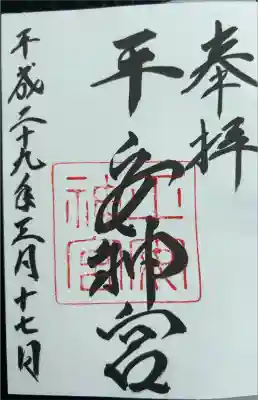 奉拝
平安神宮
平安神宮
平成二十九年三月十七日